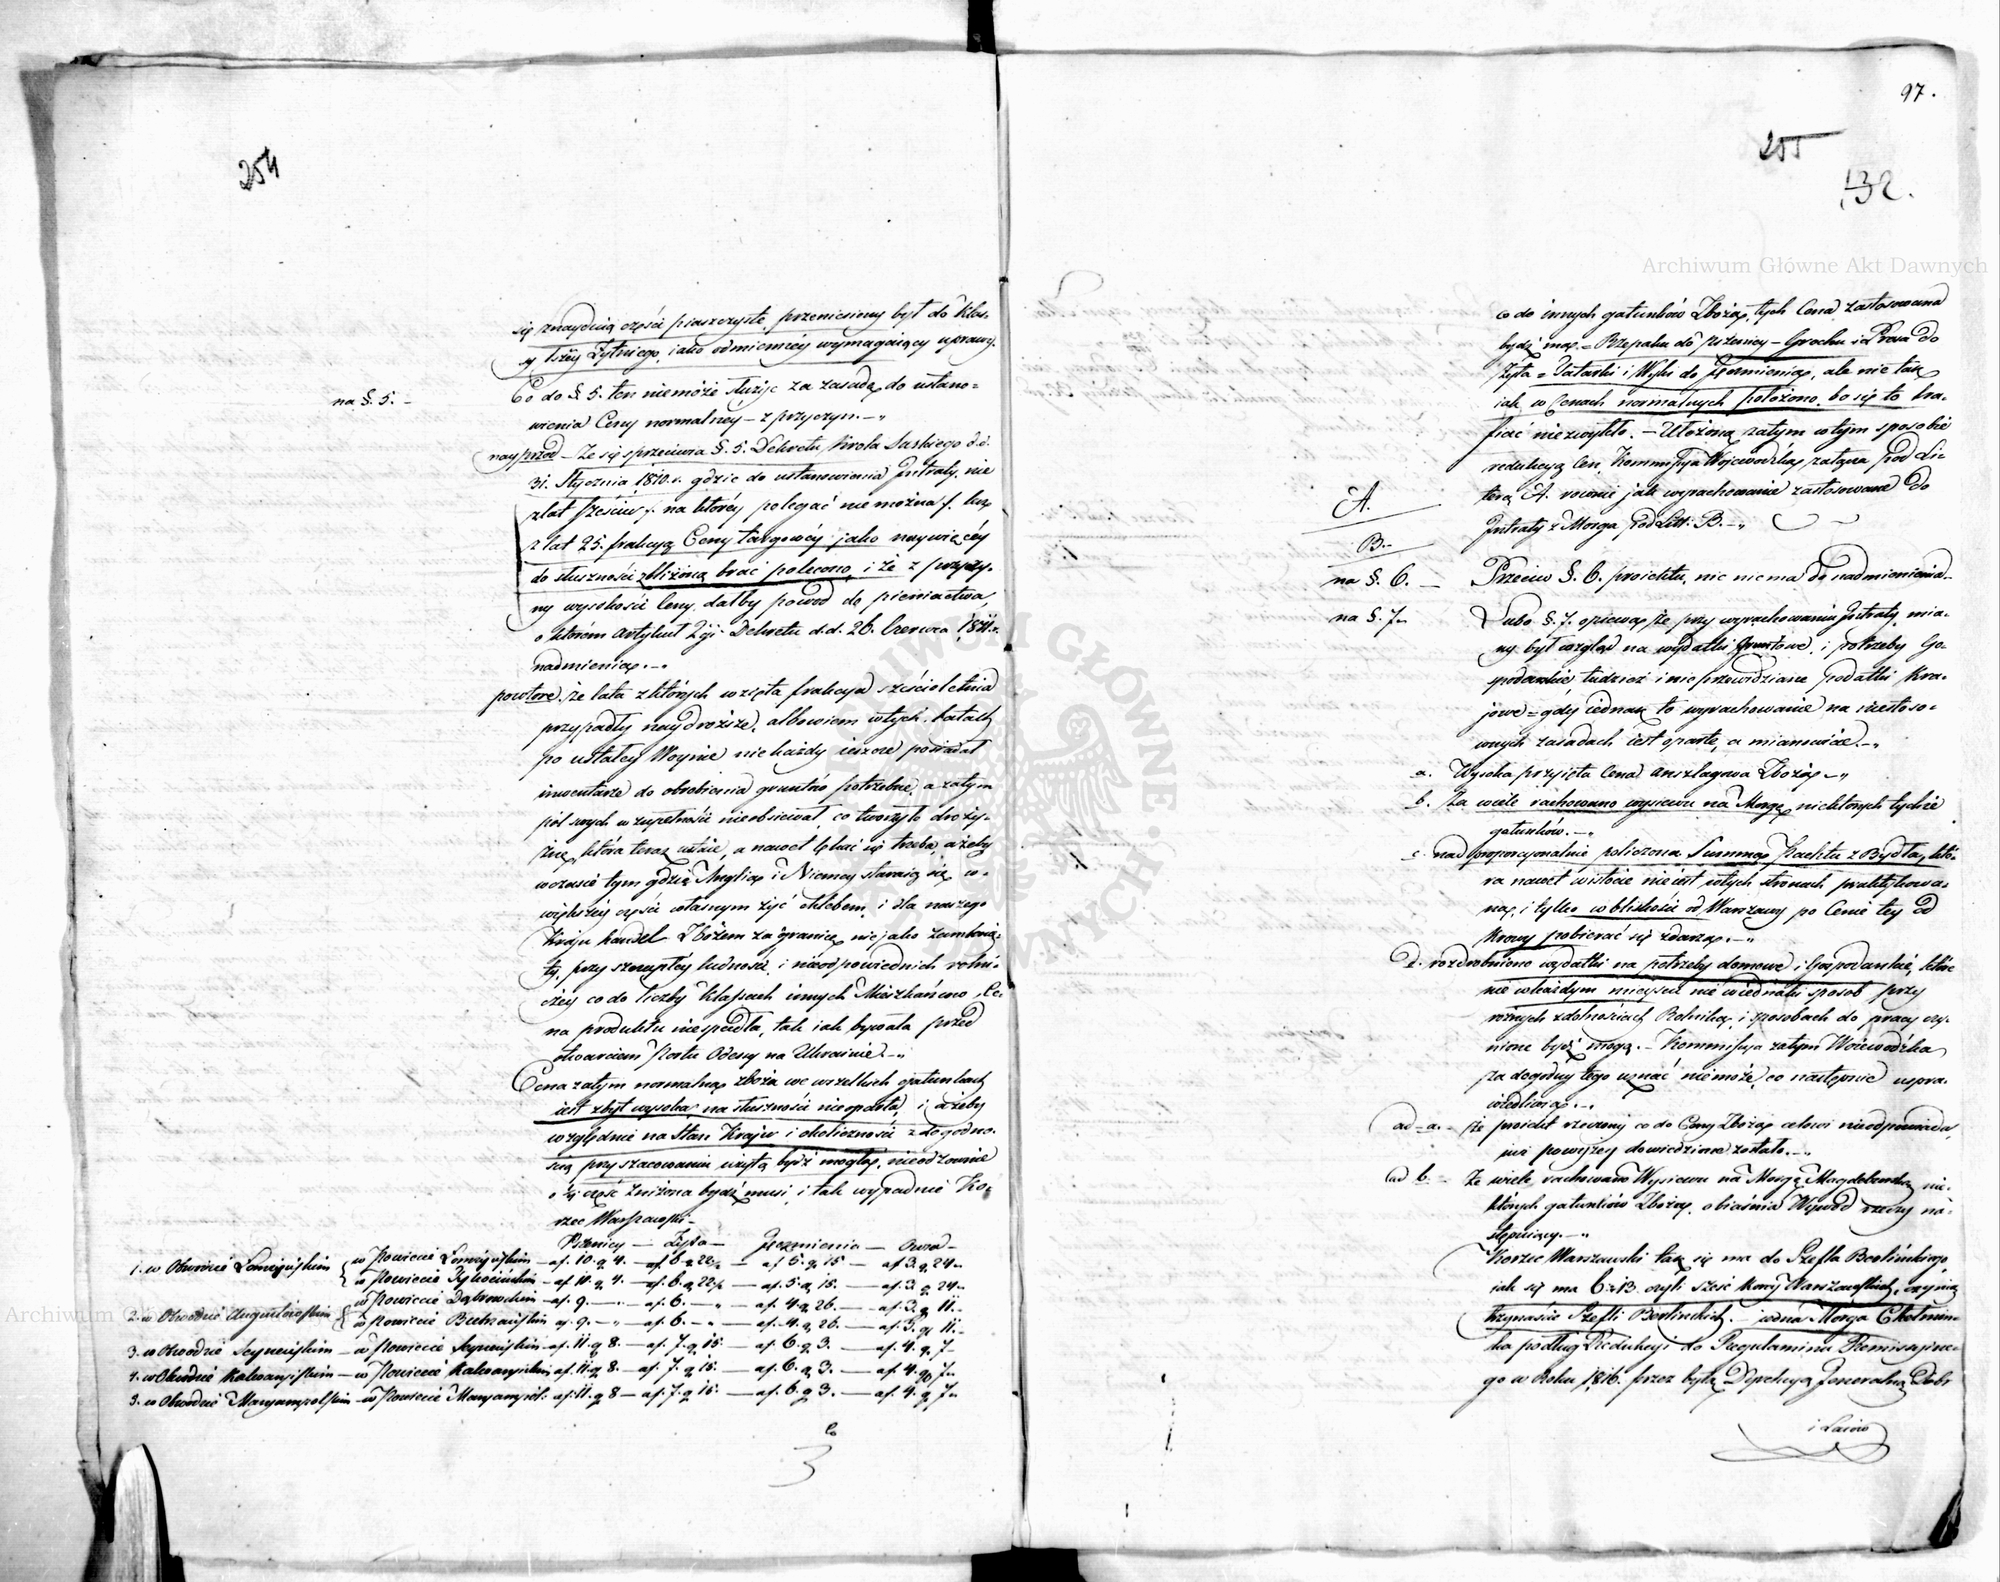 254
się znayduią części piaszczyste, przeniesiony był do Klas-
sy IIIciéy Żytniego, iako odmiennéy wymagaiący uprawy.
na §. 5. –
Co do §. 5. ten niemoże służyć za zasadę do ustano=
wienia Ceny normalnéy – z przyczyn. –
nayprzod – Że się sprzeciwia §. 5. Dekretu Króla Saskiego d. d.
31. Stycznia 1810. r. gdzie do ustanowienia Jntraty, nie
z lat sześciu /: na któréy polegać nie można :/ lecz
z lat 25. frakcyą Ceny targowéy jako naywięcéy
do słuszności zbliżoną brać polecono, i że z przyczy-
ny wysokości Ceny, dałby powód do pieniactwa,
o którém Artykuł 2gi Dekretu d. d. 26. Czerwca 1811. r.
nadmienia. –
powtóre. że lata z których wzięta frakcya sześcioletnia
przypadły naydroższe, albowiem w tych latach
po ustałey Woynie nie każdy ieszcze posiadał
inwentarze do obrobienia gruntów potrzebne, a zatym
pól swych w zupełności nieobsiewał, co tworzyło droży-
znę, która teraz ustaie, a nawet lękać się trzeba, ażeby
w czasie tym gdzie Anglia i Niemcy staraią się w
większéy części własnym żyć chlebem, i dla naszego
Kraju handel Zbożem za granicę nie jako zamknię-
ty, przy szczupłéy ludności, i nieodpowiednich rolni-
czéy co do liczby Klassach innych Mieszkańców, Ce-
na produktu nie spadła, tak iak bywała przed
otwarciem Portu Odessy na Ukrainie. –
Cena zatym normalna zboża we wszelkich gatunkach
iest zbyt wysoka, na słuszności nieoparta, i ażeby
względnie na Stan Kraju i okoliczności z dogodno-
ścią przy szacowaniu użytą bydź mogła, nieodzownie
o część zniżona bydź musi, i tak wypadnie Ko-
rzec Warszawski –
Pszenicy — Żyta — Jęczmienia — Owsa –
1. w Obwodzie Łomżyńskim { w Powiecie Łomżyńskim – zł. 10. g. 4. – zł. 6. g. 22½ – zł. 5. g. 15 – zł. 3. g. 24 –
w Powiecie Tykocińskim – zł. 10. g. 4. – zł. 6. g. 22½ – zł. 5. g. 15. – zł. 3. g. 24 –
2. w Obwodzie Augustowskim { w Powiecie Dąbrowskim – zł. 9. – „ – zł. 6. – „ – zł. 4. g. 26. – zł. 3. g. 11. –
w Powiecie Biebrzańskim zł. 9. – „ – zł. 6. – „ – zł. 4. g. 26. – zł. 3. g. 11. –
3. w Obwodzie Seyneńskim – w Powiecie Seyneńskim – zł. 11. g. 8. – zł. 7. g. 15. – zł. 6. g. 3. – zł. 4. g. 7 –
4. w Obwodzie Kalwaryiskim – w Powiecie Kalwaryiskim zł. 11. g. 8. – zł. 7. g. 15. – zł. 6. g. 3. – zł. 4. g. 7 –
5. w Obwodzie Maryampolskim – w Powiecie Maryampol: zł. 11. g. 8 – zł. 7. g. 15. – zł. 6. g. 3. – zł. 4. g. 7 –
Co
97.
255
132.
co do innych gatunków Zboża, tych Cena zastosowana
bydź ma. = Rzepaku do Pszenicy – Grochu i Prosa do
Żyta = Tatarki i Wyki do Jęczmienia, ale nie tak
iak w Cenach normalnych położono, bo się to tra-
fiać niezwykło. – Ułożoną zatym w tym sposobie
redukcyą Cen, Kommissya Woiewódzka załącza pod Li-
A.
terą A. równie jak wyrachowanie zastosowane do
B. –
Jntraty z Morga pod Litt: B. –
na §. 6. –
Przeciw §. 6. proiektu, nic niema do nadmienienia –
na §. 7 –
Lubo §. 7. opiewa, że przy wyrachowaniu Jntraty, mia-
ny był wzgląd na wydatki gruntowe, i potrzeby Go-
spodarskie, tudzież i nieprzewidziane podatki Kra-
jowe = gdy iednak to wyrachowanie na niestoso-
wnych zasadach iest oparte, a mianowicie. –
a. Wysoka przyięta Cena Anszlagowa Zboża –
b. Za wiele rachowano wysiewu na Morgę niektórych tychże
gatunków. –
c. nad proporcyonalnie policzona Summa Pachtu z Bydła, któ-
ra nawet w istocie nie iest w tych stronach praktykowa-
na, i tylko w bliskości od Warszawy po Cenie tey od
Krowy pobierać się zdarza. –
d. rozdrobniono wydatki na potrzeby domowe i Gospodarskie, które
nie w każdym mieyscu nie wiednaki sposób przy
różnych zdolnościach Rolnika, i sposobach do pracy czy-
nione bydź mogą. – Kommissya zatym Woiewódzka
za dogodny tego uznać niemoże, co następnie uspra-
wiedliwia. –
ad a. – że proiekt rzeczony co do Ceny Zboża celowi nieodpowiada,
już powyżey dowiedzione zostało. –
ad b. – Że wiele rachowano Wysiewu na Morgę Magdeburską nie-
których gatunków Zboża, obiaśnia Wywód rzeczy na-
stępuiący. –
Korzec Warszawski tak się ma do Szefla Berlińskiego,
iak się ma 6: 13. czyli sześć Korcy Warszawskich, czynią
trzynaście Szefli Berlińskich. – jedna Morga Chełmiń-
ska podług Redukcyi do Regulaminu Remissyine-
go w Roku 1816. przez byłą Dyrekcyą Jeneralną Dóbr
i Lasów